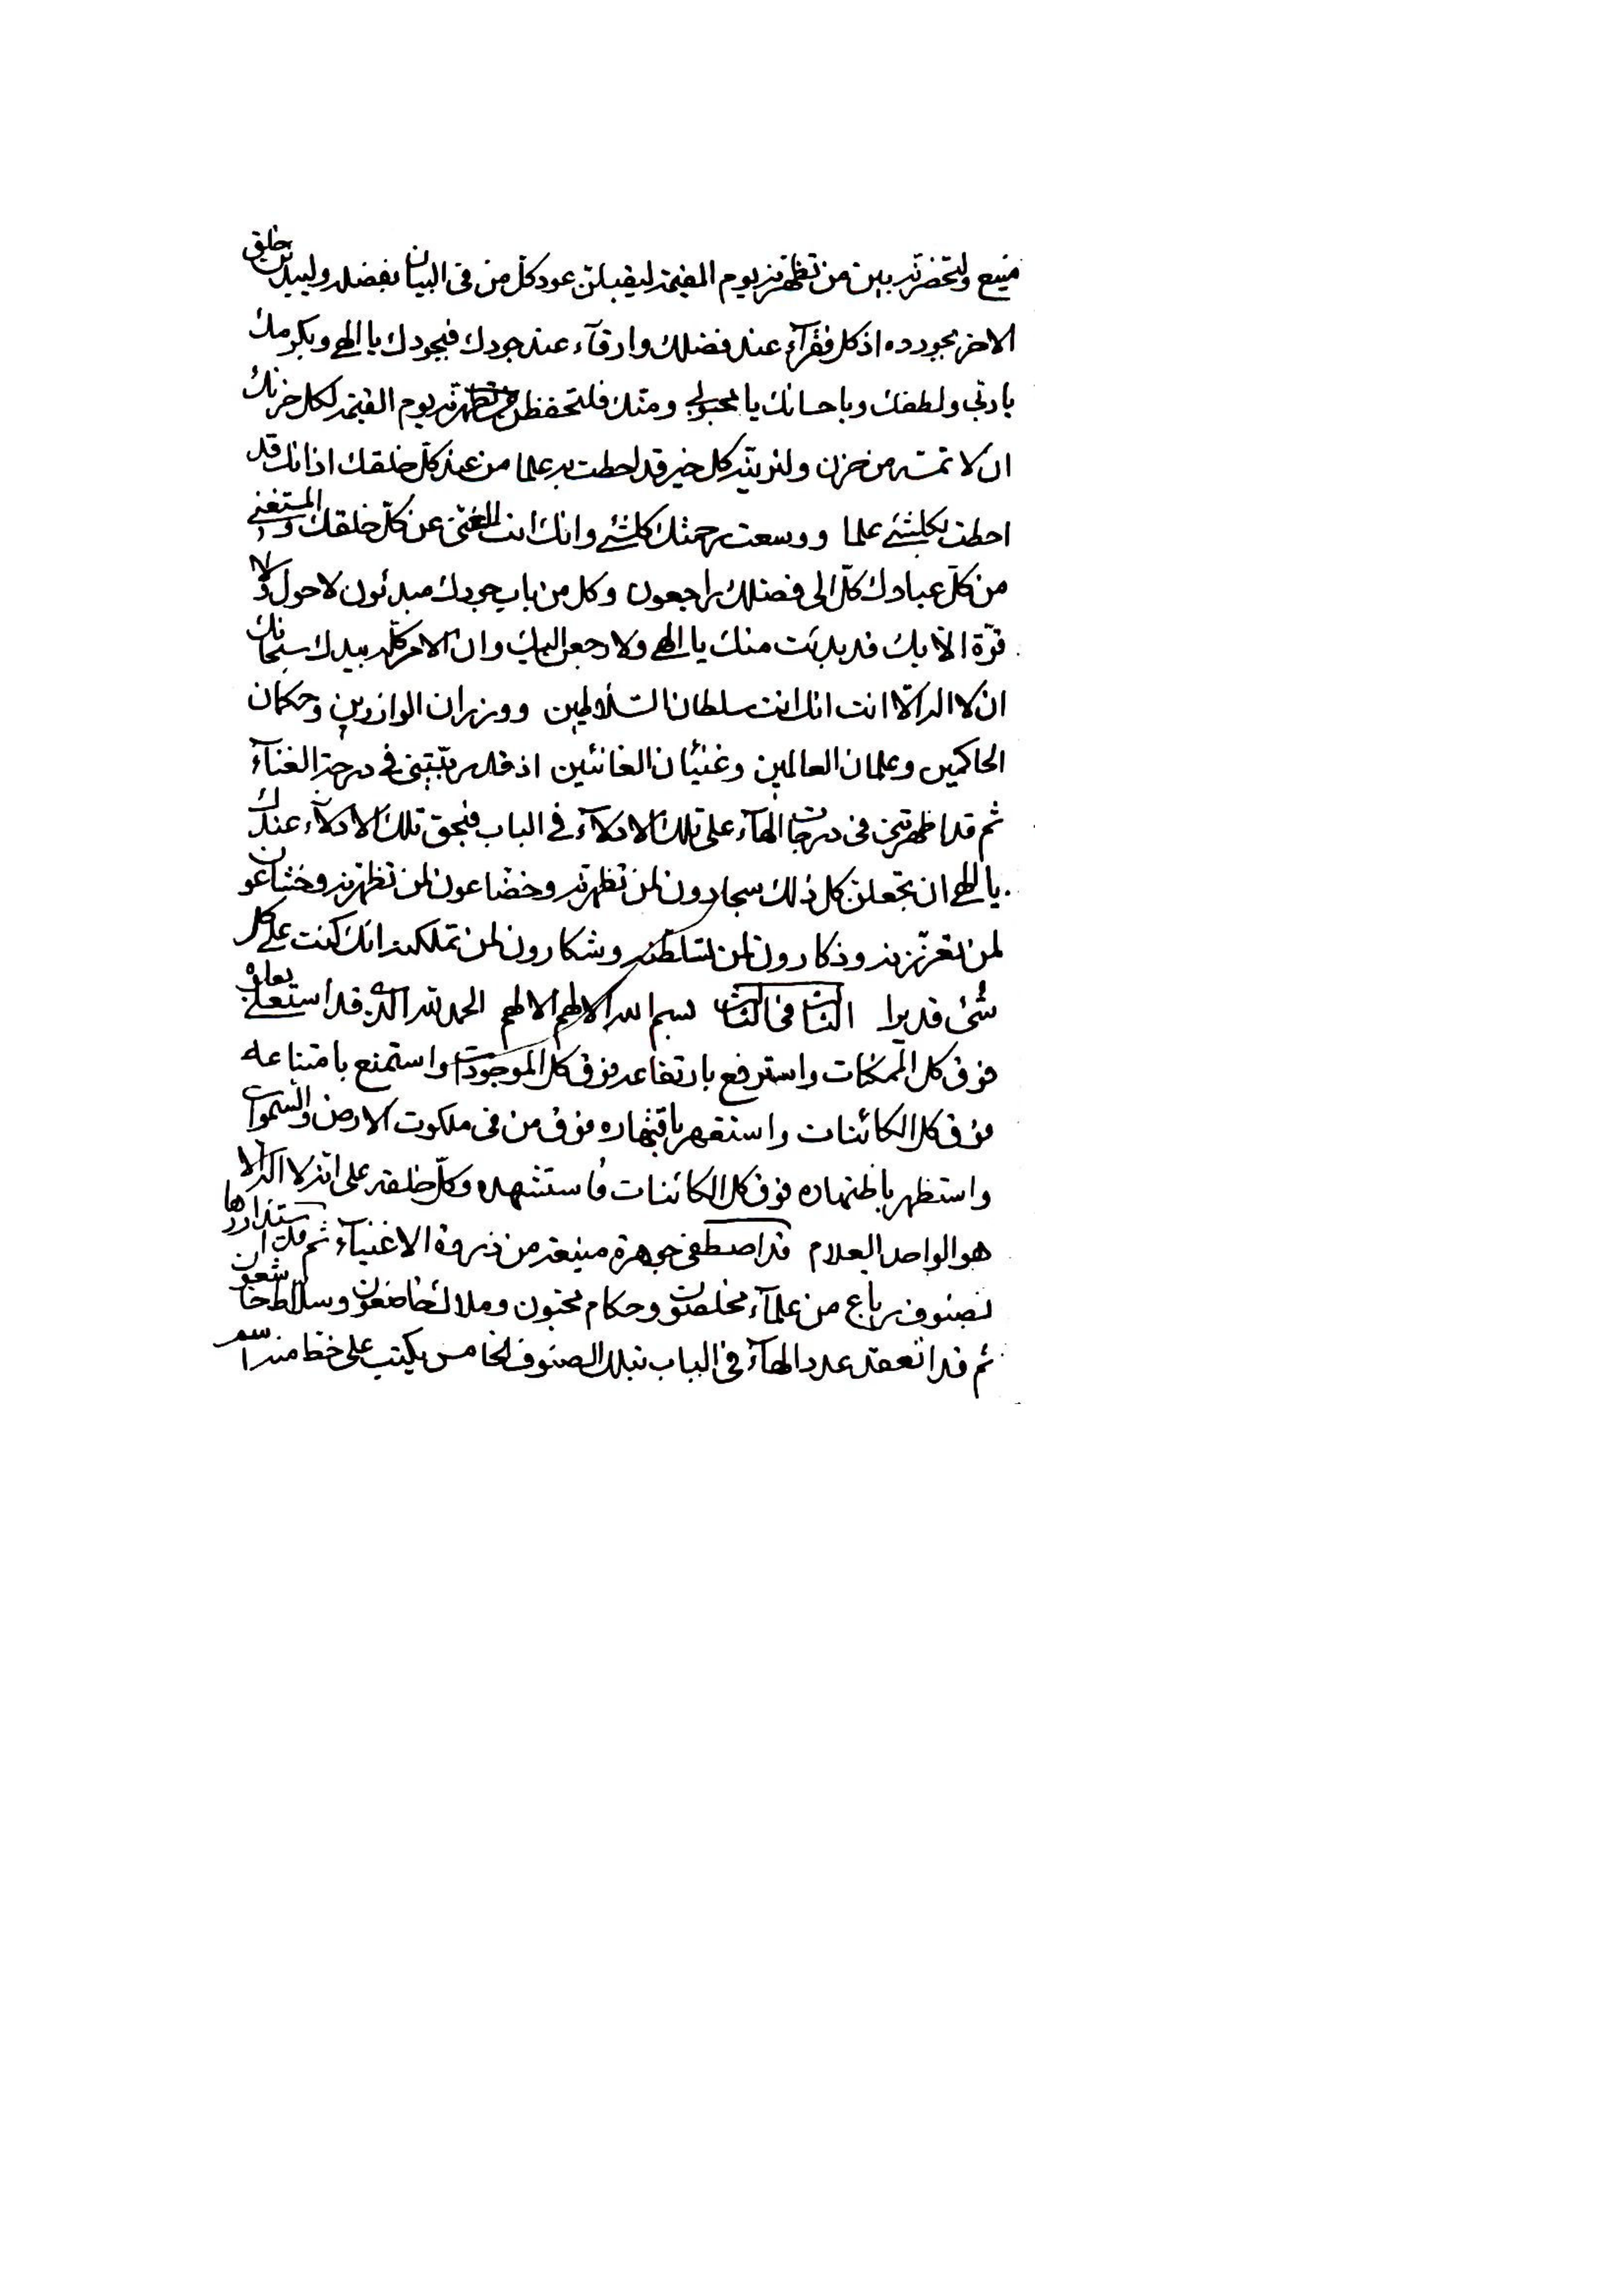 منیع ولتحضرنه بین من تظهرنه یوم القیمة لیقبلن عود کل من فی البیان بفضله ولیبدئن خلق
الاخر بجوده اذ کل فقرآء عند فضلك وارقآء عند جودك فبجودك یا الهی وبکرمك
یا ربی ولطفك وباحسانك یا محبوبی ومنك فلتحفظن من تظهرنه یوم القیمة لکل حزنك
ان لا تمسه من حزن ولتربینه کل خیر قد احطت به علما من عند کل خلقك اذ انك قد
احطت بکلشئ علما ووسعت رحمتك کلشئ وانك انت الغنی عن کل خلقك والمستغنی
من کل عبادك کل الی فضلك راجعون وکل من باب جودك مبدئون لا حول ولا
قوة الا بك قد بدئت منك یا الهی ولارجعن الیك وان الامر کله بیدك سبحانك
ان لا اله الا انت انك انت سلطان السلاطین ووزران الوازرین وحکمان
الحاکمین وعلمان العالمین وغنیان الغانئین اذ قد ربیتنی فی درجة الغنآء
ثم قد اظهرتنی فی درجات الهآء علی تلك الادلاء فی الباب فبحق تلك الادلاء عندك
یا الهی ان تجعلن کل ذلك سجادون لمن تظهرنه وخضاعون لمن تظهرنه وخشاعون
لمن تعززنه وذکارون لمن تسلطنه وشکارون لمن تملکنه انك کنت علی کل
شئ قدیرا الثالث فی الثالث بسم الله الالهم الالهم الحمد لله الذی قد استعلی بعلوه
فوق کل الممکنات واسترفع بارتفاعه فوق کل الموجودات واستمنع بامتناعه
فوق کل الکائنات واستقهر باقتهاره فوق من فی ملکوت الارض والسموات
واستظهر باظتهاره فوق کل الکائنات فاستشهده وکل خلقه علی انه لا اله الا
هو الواحد العلام قد اصطفی جوهرة منیعة من ذروة الاغنیآء ثم قد استدارها
لصنوف رباع من علمآء مخلصون وحکام مخبتون وملاك خاضعون وسلاط خاشعون
ثم قد انعقد عدد الهآء فی الباب بتلك الصنوف الخامس یکتب علی خط منه اسم